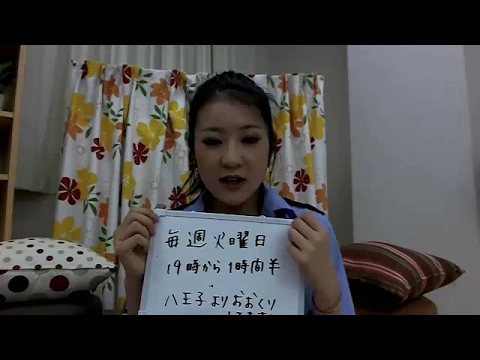 毎週火曜日
19時から1時間半
八王子よりおおくり